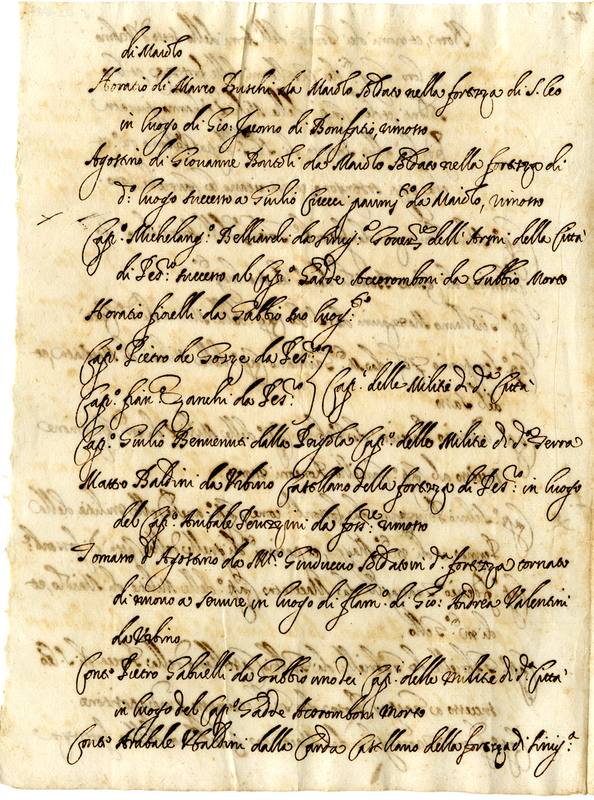 di Maiolo
Horatio di Marco Buschi da Maiolo Soldato nella fortezza di S. Leo
in luogo di Gio: Jacomo di Bonifatio, rimosso
Agostino di Giovanne Bartoli da Maiolo Soldato nella fortezza di
d.º luogo successo a Giulio Cucci da Maiolo, rimosso
Cap.º Michelang.º Belliardi da Sinig.ª dell'Armi della Città
di Pes.ro successo al Cap.º Gadde Accoromboni da Gubbio Morto
Horatio fioelli da Gubbio suo luog.
Cap.º Pietro de Gozze da Pes.ro
Cap.º fran.co Zanchi da Pes.ro } Cap.i delle Militie di d.ª Città
Cap.º Giulio Benvenuti dalla Pergola Cap.º delle Militie di d.ª Terra
Matteo Baldini da Urbino Castellano della fortezza di Pes.ro: in luogo
del Cap.º Anibale Peruzzini da foss.e rimosso
Tomasso d'Agostino da M.te Guiduccio Soldato in d.ª fortezza tornato
di nuovo a servire, in luogo di flam.º di Gio: Andrea Valentini
da Urbino
Conte Pietro Gabrielli da Gubbio uno dei Cap.i delle Militie di d.ª Città
in luogo del Cap.º Gadde Accoromboni Morto
Conte Anibale Ubaldini dalla Carda Castellano della fortezza di Sinig.ª